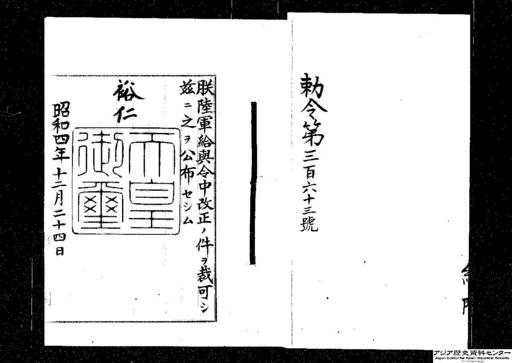 勅令第三百六十三號
朕陸軍給與令中改正ノ件ヲ裁可シ
玆ニ之ヲ公布セシム
裕仁
天皇
御璽
昭和四年十二月二十四日
アジア歴史資料センター
Japan Center for Asian Historical Records